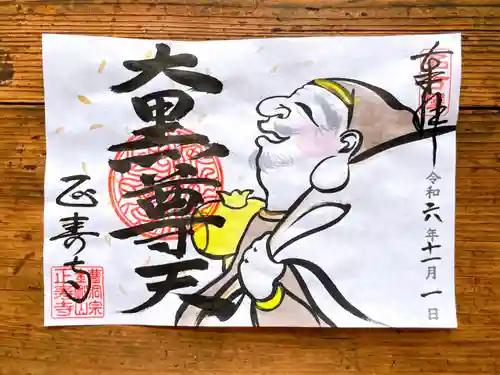 奉拝
令和六年十一月一日
大黒尊天
正寿寺
曹洞宗
正寿寺